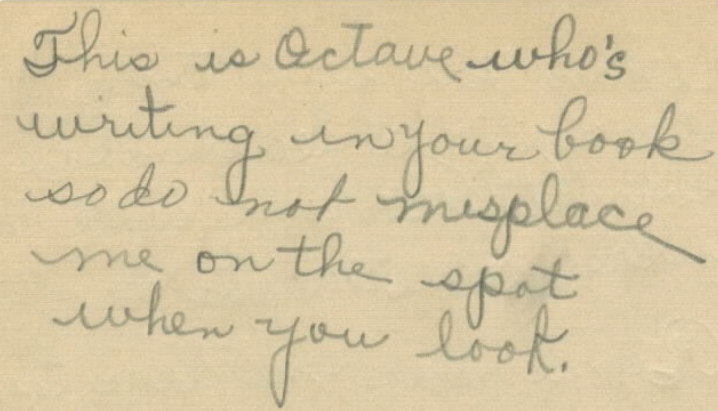 This is Octave who's
writing in your book
so do not misplace
me on the spot
when you look.